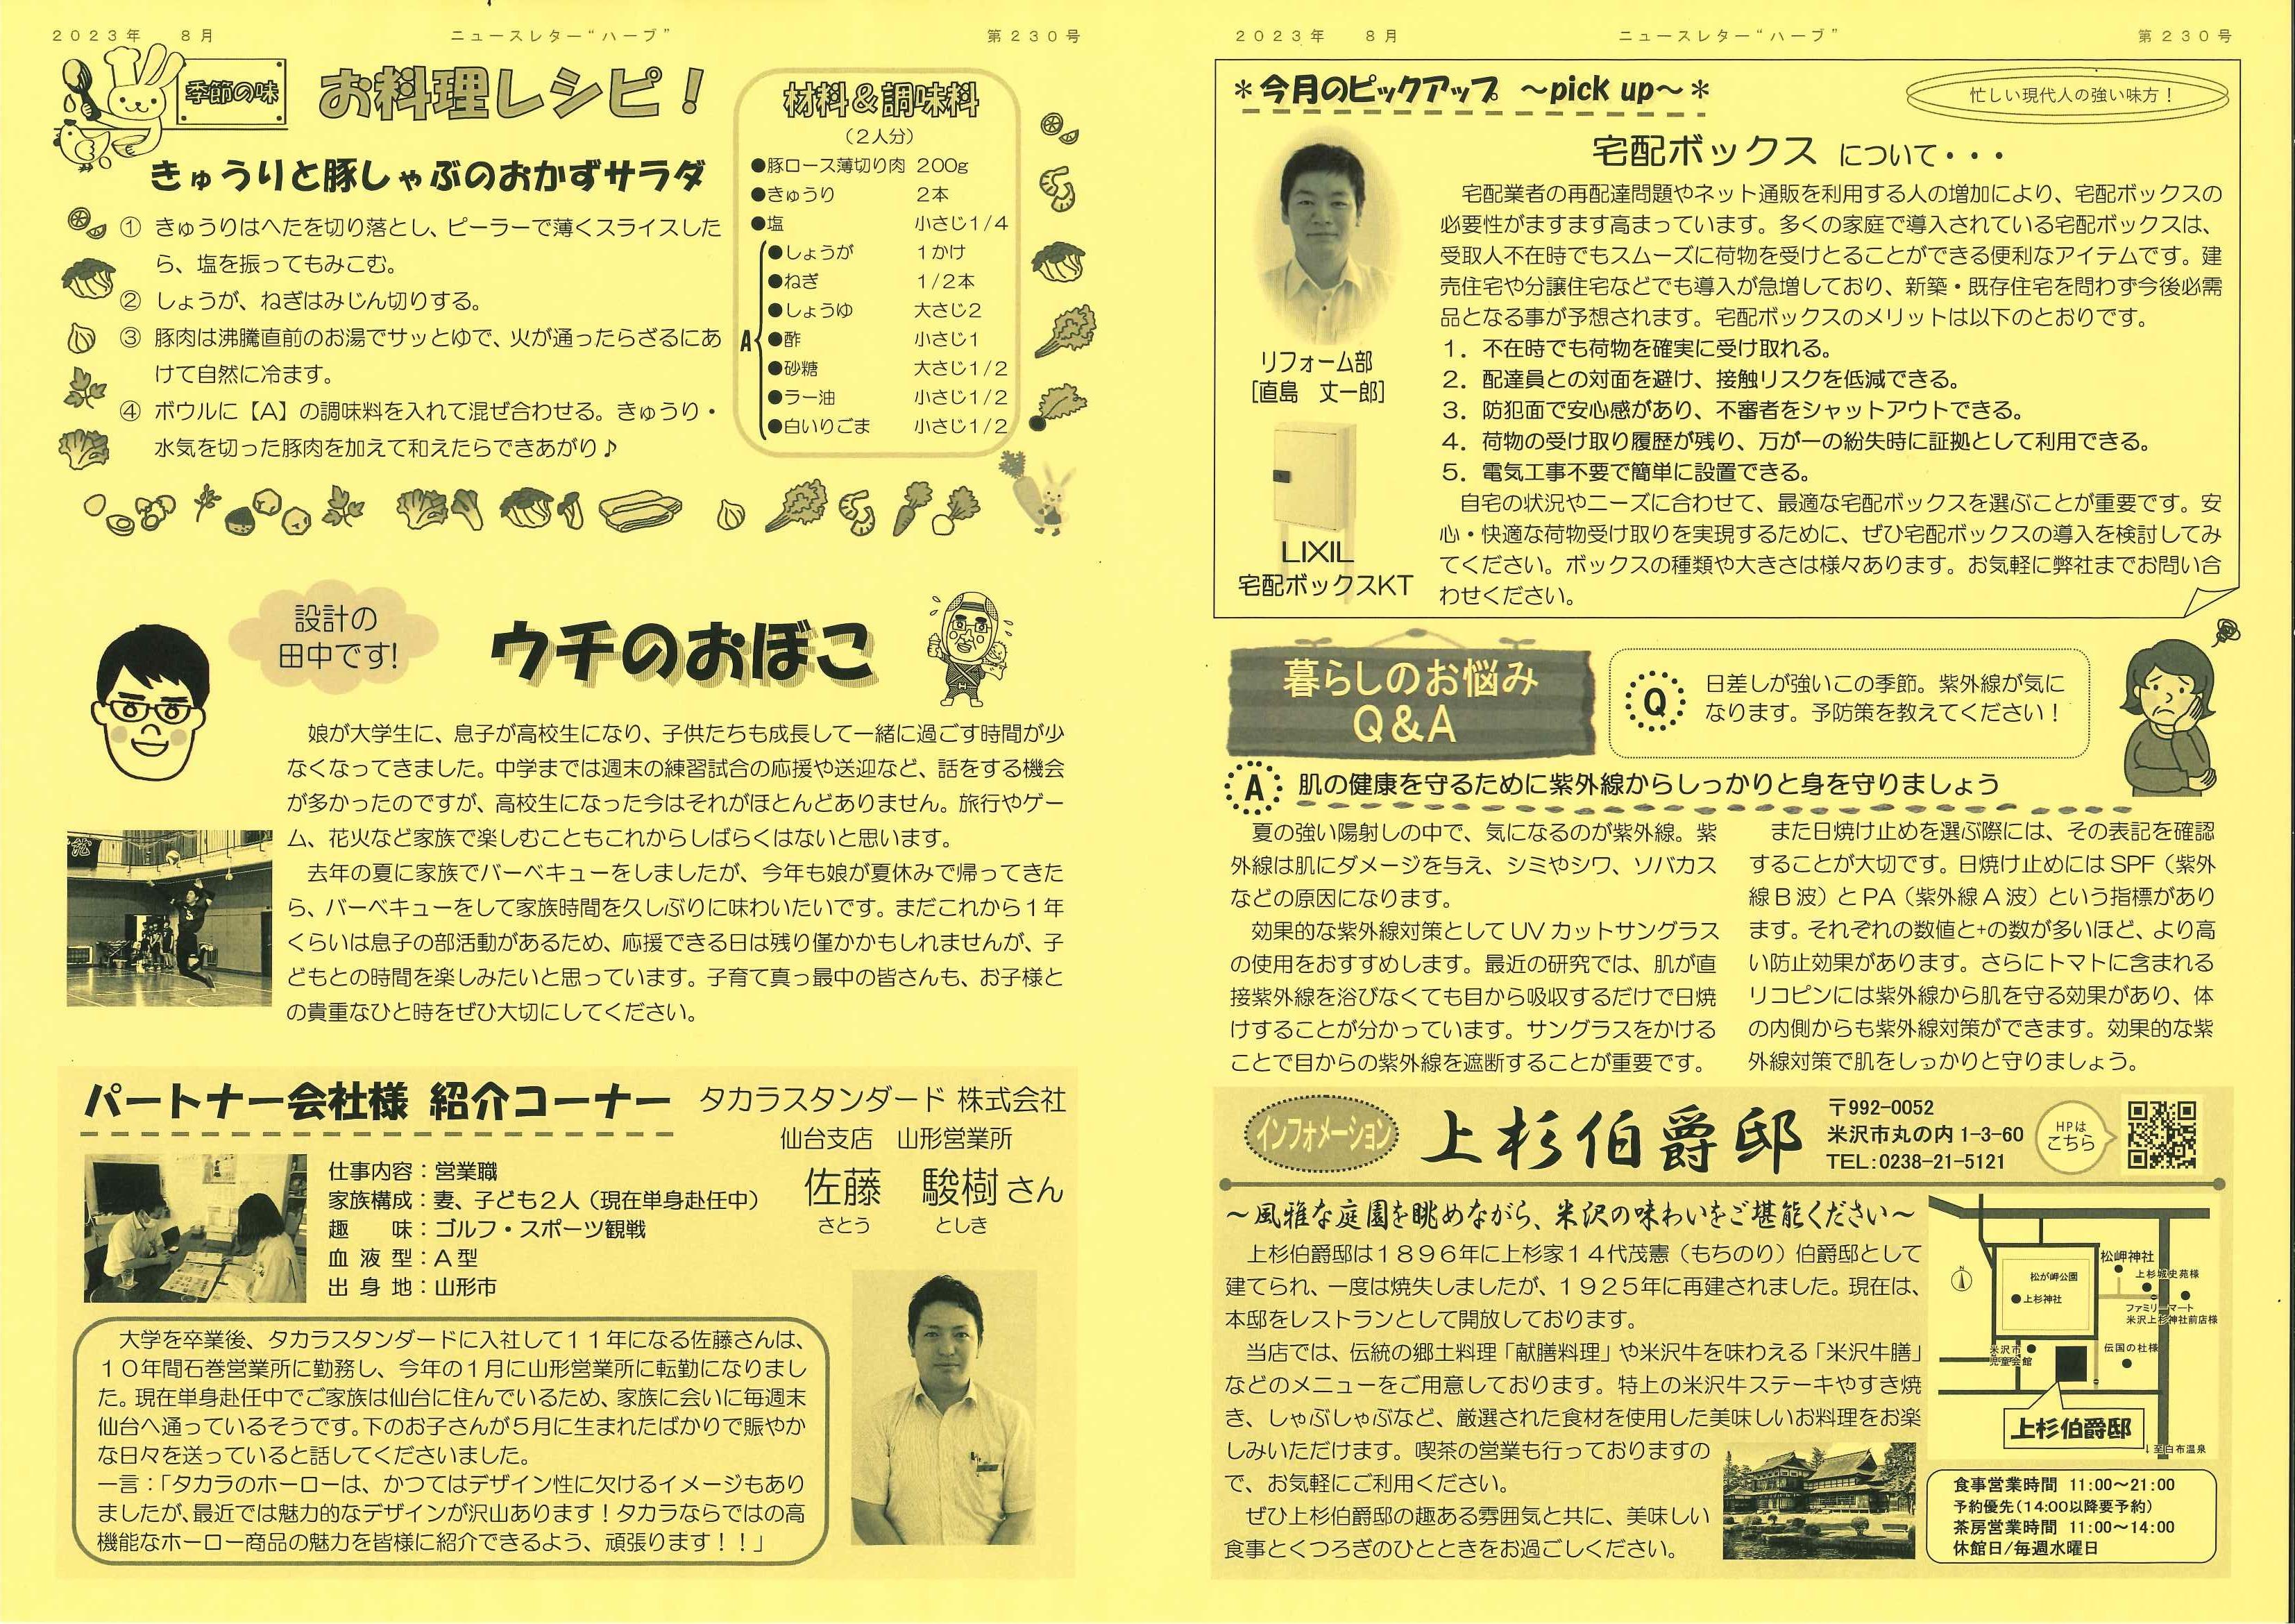 2023年　8月
ニュースレター“ハーブ”
第230号
季節の味
お料理レシピ！
きゅうりと豚しゃぶのおかずサラダ
① きゅうりはへたを切り落とし、ピーラーで薄くスライスした
ら、塩を振ってもみこむ。
② しょうが、ねぎはみじん切りする。
③ 豚肉は沸騰直前のお湯でサッとゆで、火が通ったらざるにあ
けて自然に冷ます。
④ ボウルに【A】の調味料を入れて混ぜ合わせる。きゅうり・
水気を切った豚肉を加えて和えたらできあがり♪
材料＆調味料
（2人分）
●豚ロース薄切り肉 200g
●きゅうり 2本
●塩 小さじ1/4
A
●しょうが 1かけ
●ねぎ 1/2本
●しょうゆ 大さじ2
●酢 小さじ1
●砂糖 大さじ1/2
●ラー油 小さじ1/2
●白いりごま 小さじ1/2
設計の
田中です！
ウチのおぼこ
娘が大学生に、息子が高校生になり、子供たちも成長して一緒に過ごす時間が少
なくなってきました。中学までは週末の練習試合の応援や送迎など、話をする機会
が多かったのですが、高校生になった今はそれがほとんどありません。旅行やゲー
ム、花火など家族で楽しむこともこれからしばらくはないと思います。
去年の夏に家族でバーベキューをしましたが、今年も娘が夏休みで帰ってきた
ら、バーベキューをして家族時間を久しぶりに味わいたいです。まだこれから1年
くらいは息子の部活動があるため、応援できる日は残り僅かかもしれませんが、子
どもとの時間を楽しみたいと思っています。子育て真っ最中の皆さんも、お子様と
の貴重なひと時をぜひ大切にしてください。
パートナー会社様 紹介コーナー
タカラスタンダード 株式会社
仙台支店　山形営業所
佐藤　駿樹さん
さとう　としき
仕事内容：営業職
家族構成：妻、子ども2人（現在単身赴任中）
趣　　味：ゴルフ・スポーツ観戦
血 液 型：A型
出 身 地：山形市
大学を卒業後、タカラスタンダードに入社して11年になる佐藤さんは、
10年間石巻営業所に勤務し、今年の1月に山形営業所に転勤になりまし
た。現在単身赴任中でご家族は仙台に住んでいるため、家族に会いに毎週末
仙台へ通っているそうです。下のお子さんが5月に生まれたばかりで賑やか
な日々を送っていると話してくださいました。
一言：「タカラのホーローは、かつてはデザイン性に欠けるイメージもあり
ましたが、最近では魅力的なデザインが沢山あります！タカラならではの高
機能なホーロー商品の魅力を皆様に紹介できるよう、頑張ります！！」
2023年　8月
ニュースレター“ハーブ”
第230号
＊今月のピックアップ ～pick up～＊
忙しい現代人の強い味方！
宅配ボックス について・・・
リフォーム部
［直島　丈一郎］
LIXIL
宅配ボックスKT
宅配業者の再配達問題やネット通販を利用する人の増加により、宅配ボックスの
必要性がますます高まっています。多くの家庭で導入されている宅配ボックスは、
受取人不在時でもスムーズに荷物を受けとることができる便利なアイテムです。建
売住宅や分譲住宅などでも導入が急増しており、新築・既存住宅を問わず今後必需
品となる事が予想されます。宅配ボックスのメリットは以下のとおりです。
1．不在時でも荷物を確実に受け取れる。
2．配達員との対面を避け、接触リスクを低減できる。
3．防犯面で安心感があり、不審者をシャットアウトできる。
4．荷物の受け取り履歴が残り、万が一の紛失時に証拠として利用できる。
5．電気工事不要で簡単に設置できる。
自宅の状況やニーズに合わせて、最適な宅配ボックスを選ぶことが重要です。安
心・快適な荷物受け取りを実現するために、ぜひ宅配ボックスの導入を検討してみ
てください。ボックスの種類や大きさは様々あります。お気軽に弊社までお問い合
わせください。
暮らしのお悩み
Q&A
Q
日差しが強いこの季節。紫外線が気に
なります。予防策を教えてください！
A
肌の健康を守るために紫外線からしっかりと身を守りましょう
夏の強い陽射しの中で、気になるのが紫外線。紫
外線は肌にダメージを与え、シミやシワ、ソバカス
などの原因になります。
効果的な紫外線対策としてUVカットサングラス
の使用をおすすめします。最近の研究では、肌が直
接紫外線を浴びなくても目から吸収するだけで日焼
けすることが分かっています。サングラスをかける
ことで目からの紫外線を遮断することが重要です。
また日焼け止めを選ぶ際には、その表記を確認
することが大切です。日焼け止めにはSPF（紫外
線B波）とPA（紫外線A波）という指標があり
ます。それぞれの数値と+の数が多いほど、より高
い防止効果があります。さらにトマトに含まれる
リコピンには紫外線から肌を守る効果があり、体
の内側からも紫外線対策ができます。効果的な紫
外線対策で肌をしっかりと守りましょう。
インフォメーション
上杉伯爵邸
〒992-0052
米沢市丸の内1-3-60
TEL:0238-21-5121
HPは
こちら
～風雅な庭園を眺めながら、米沢の味わいをご堪能ください～
上杉伯爵邸は1896年に上杉家14代茂憲（もちのり）伯爵邸として
建てられ、一度は焼失しましたが、1925年に再建されました。現在は、
本邸をレストランとして開放しております。
当店では、伝統の郷土料理「献膳料理」や米沢牛を味わえる「米沢牛膳」
などのメニューをご用意しております。特上の米沢牛ステーキやすき焼
き、しゃぶしゃぶなど、厳選された食材を使用した美味しいお料理をお楽
しみいただけます。喫茶の営業も行っておりますの
で、お気軽にご利用ください。
ぜひ上杉伯爵邸の趣ある雰囲気と共に、美味しい
食事とくつろぎのひとときをお過ごしください。
松岬神社
松が岬公園
上杉城史苑様
●上杉神社
ファミリーマート
米沢上杉神社前店様
米沢市
児童会館
伝国の杜様
上杉伯爵邸
↓至白布温泉
食事営業時間 11:00～21:00
予約優先（14:00以降要予約）
茶房営業時間 11:00～14:00
休館日/毎週水曜日